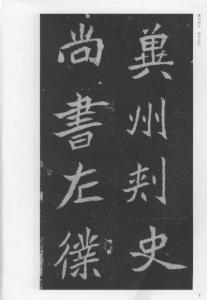 冀州刺史
尚書左僕